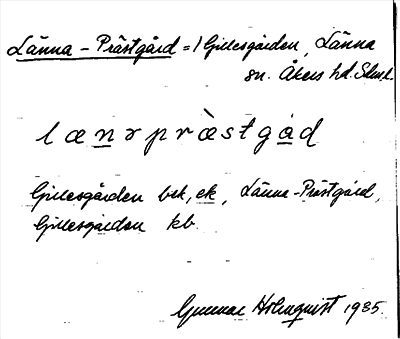 Länna - Prästgård = 1 Gillesgården, Länna
sn. Åkers hd. Sdml.
l æ n ə r p r æ̀ s t g a d
Gillesgården bek, ek, Länna-Prästgård,
Gillesgården kb.
Gunnar Holmquist 1935.